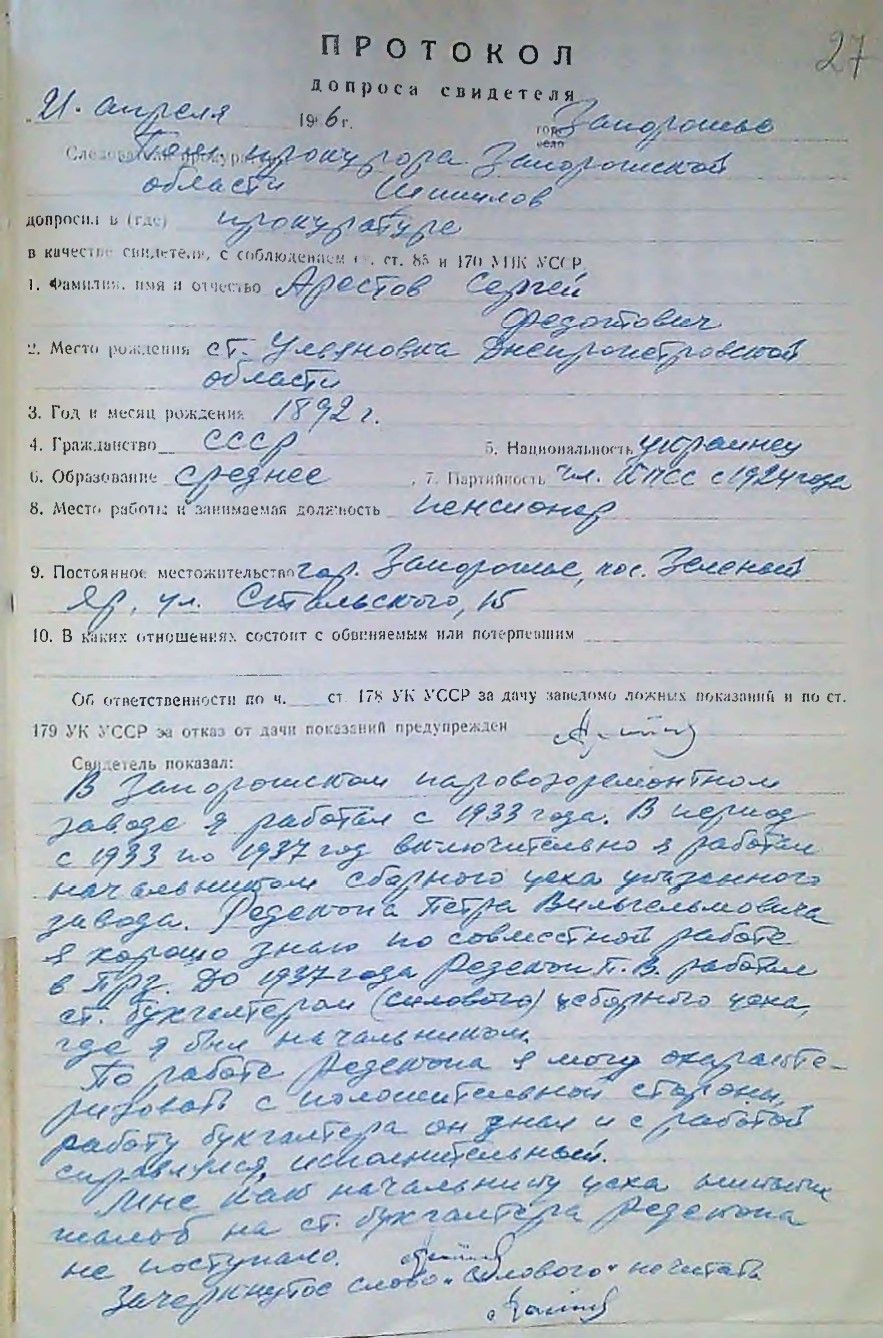 27
ПРОТОКОЛ
допроса свидетеля
"21" апреля 1966 г. гор. Запорожье
село
Следователь прокуратуры Пом. прокурора Запорожской
области Шишлов
допросил в (где) прокуратуре
в качестве свидетеля, с соблюдением ст. ст. 85 и 170 УПК УССР
1. Фамилия, имя и отчество Арестов Сергей
Федотович
2. Место рождения ст. Ульяновка Днепропетровской
области
3. Год и месяц рождения 1892 г.
4. Гражданство СССР 5. Национальность украинец
6. Образование среднее , 7. Партийность чл. КПСС с 1924 года
8. Место работы и занимаемая должность пенсионер
9. Постоянное местожительство гор. Запорожье, пос. Зеленый
Яр, ул. Стальского, 15
10. В каких отношениях состоит с обвиняемым или потерпевшим
Об ответственности по ч. ст. 178 УК УССР за дачу заведомо ложных показаний и по ст.
179 УК УССР за отказ от дачи показаний предупрежден
Свидетель показал:
В Запорожском паровозоремонтном
заводе я работал с 1933 года. В период
с 1933 по 1937 год включительно я работал
начальником сборного цеха указанного
завода. Редекопа Петра Вильгельмовича
я хорошо знаю по совместной работе
в ПРЗ. До 1937 года Редекоп П. В. работал
ст. бухгалтером (силового) сборного цеха,
где я был начальником.
По работе Редекопа я могу охаракте-
ризовать с положительной стороны,
работу бухгалтера он знал и с работой
справлялся, исполнительный.
Мне как начальнику цеха никаких
жалоб на ст. бухгалтера Редекопа
не поступало.
Зачеркнутое слово "силового" не читать